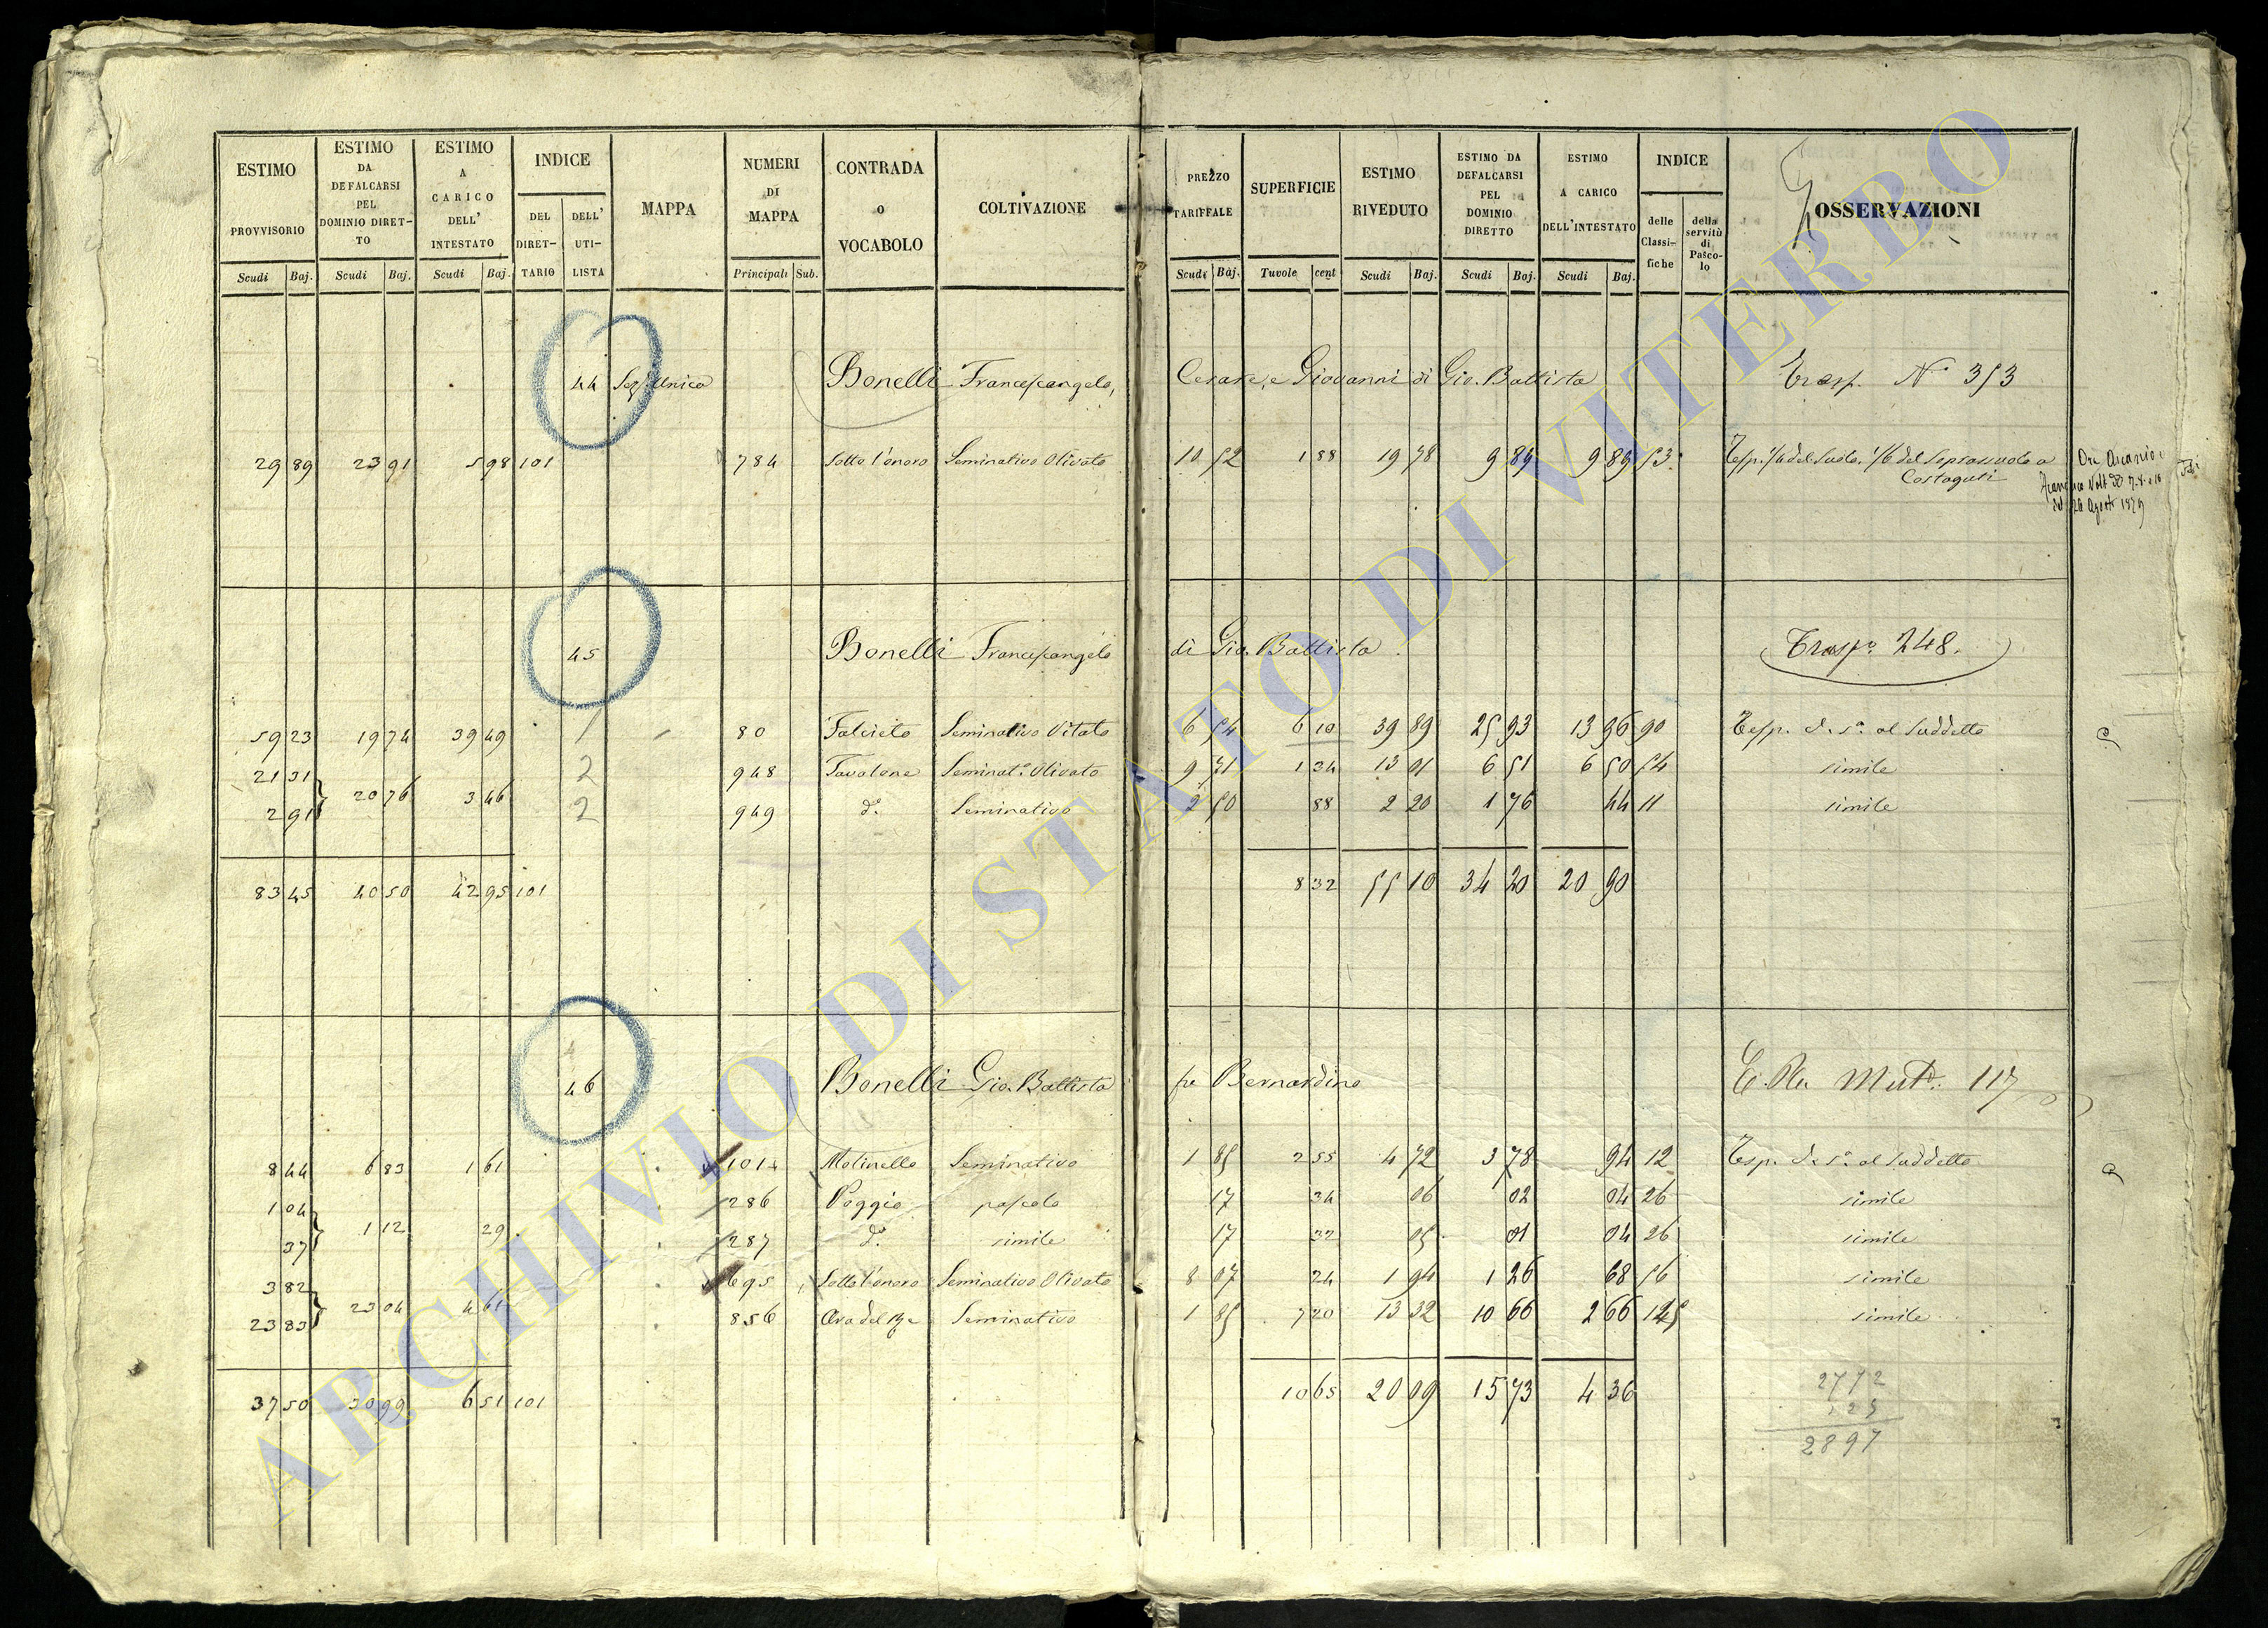 ESTIMO PROVVISORIO Scudi Baj.
ESTIMO DA DEFALCARSI PEL DOMINIO DIRETTO Scudi Baj.
ESTIMO A CARICO DELL' INTESTATO Scudi Baj.
INDICE DEL DIRETTARIO DELL' UTILISTA
MAPPA
NUMERI DI MAPPA Principali Sub.
CONTRADA O VOCABOLO
COLTIVAZIONE
PREZZO TARIFFALE Scudi Baj.
SUPERFICIE Tavole cent
ESTIMO RIVEDUTO Scudi Baj.
ESTIMO DA DEFALCARSI PEL DOMINIO DIRETTO Scudi Baj.
ESTIMO A CARICO DELL'INTESTATO Scudi Baj.
INDICE delle Classifiche della servitù di Pascolo
OSSERVAZIONI
44 Sez. Unica Bonelli Francescangelo, Cesare, e Giovanni di Gio. Battista Trasp. N° 353
29 89 23 91 5 98 101 784 Sotto l'onoro Seminativo Olivato 10 52 1 88 19 78 9 89 9 89 53 Resp. 1/4 del Suolo. 1/6 del Soprasuolo a
Costaguti
26 Agosto 1879
45 Bonelli Francescangelo di Gio. Battista Trasp.° 248.
59 23 19 74 39 49 1 80 Falcieto Seminativo Vitato 6 54 6 10 39 89 25 93 13 96 90 Resp. d. s.a al Suddetto
21 31 2 948 Tavolone Seminat.° Olivato 9 71 1 34 13 01 6 51 6 50 54 simile
20 76 3 46
2 91 2 949 d.° Seminativo 2 50 88 2 20 1 76 44 11 simile
83 45 40 50 42 95 101 8 32 55 10 34 20 20 90
46 Bonelli Gio. Battista fu Bernardino Mut. 117
8 44 6 83 1 61 101 Molinello Seminativo 1 85 2 55 4 72 3 78 94 12 Resp. d. s.a al Suddetto
1 04 286 Poggio pascolo 17 34 06 02 04 26 simile
1 12 29
37 287 d.° simile 17 32 05 01 04 26 simile
3 82 695 Sotto l'onoro Seminativo Olivato 8 07 24 1 94 1 26 68 56 simile
23 04 4 61
23 83 856 Seminativo 1 85 7 20 13 32 10 66 2 66 simile
37 50 30 99 6 51 101 10 65 20 09 15 73 4 36
2772
125
2897
ARCHIVIO DI STATO DI VITERBO